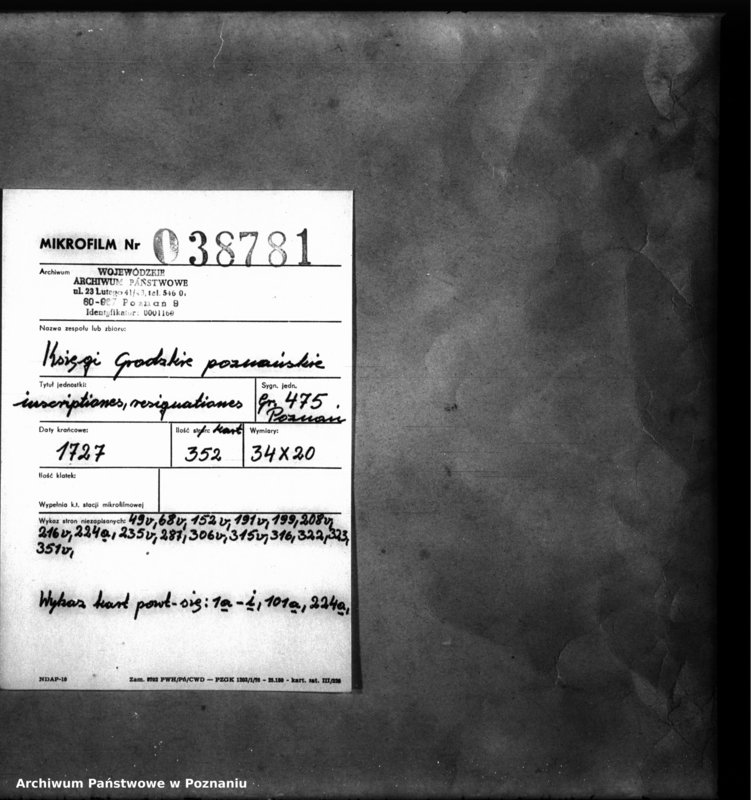 MIKROFILM Nr 038781
Archiwum WOJEWÓDZKIE
ARCHIWUM PAŃSTWOWE
ul. 23 Lutego 41/43, tel. 546 0.
60-967 Poznań 9
Identyfikator: 0001160
Nazwa zespołu lub zbioru:
Księgi Grodzkie poznańskie
Tytuł jednostki:
inscriptiones, resignationes
Sygn. jedn.
Gr. 475
Poznań
Daty krańcowe:
1727
Ilość stron: kart
352
Wymiary:
34X20
Ilość klatek:
Wypełnia k.t. stacji mikrofilmowej
Wykaz stron niezapisanych: 49v, 68v, 152v, 191v, 199, 208v,
216v, 224a, 235v, 281, 306v, 315v, 316, 322, 323,
351v,
Wykaz kart powt-się: 1a-i, 101a, 224a,
NDAP-10
Zam. PWH/Pó/CWD — PZGK — kart. sat. III/
Archiwum Państwowe w Poznaniu